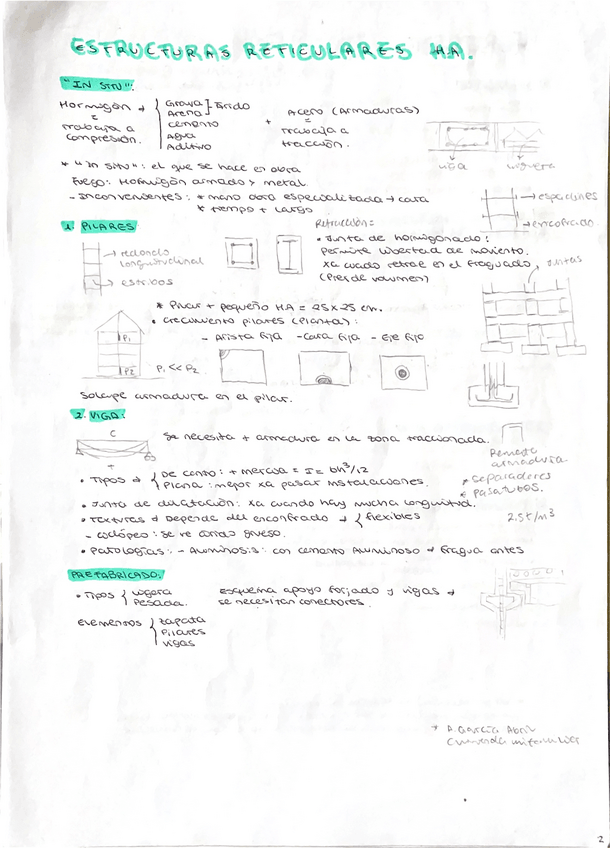 ESTRUCTURAS RETICULARES HA.
"IN SITU":
Hormigón → { Grava ] Árido
Arena
cemento
Agua
Aditivo
=
trabaja a
compresión.
+ Acero (Armaduras)
=
trabaja a
tracción.
viga
* "in situ": el que se hace en obra
Fuego: Hormigón armado > metal.
- Inconvenientes: * mano obra especializada → cara
* tiempo + largo
→ espadines
→ encofrado
1. PILARES
→ redondo
longitudinal
→ estribos
Retracción =
• Junta de hormigonado:
Permite libertad de moviento.
xa cuado retrae en el fraguado
(Pierde volumen)
Juntas
* Pilar + pequeño HA = 25x25 cm.
• crecimiento pilares (planta):
- Arista fija - Cara fija - Eje fijo
P1
P2
P1 << P2
Solape armadura en el pilar.
2. VIGA:
C
+
Se necesita + armadura en la zona traccionada.
Remate
armadura.
* separadores
* pasatubos.
• Tipos → { De canto: + inercia = I = bh³/12
Plana: mejor xa pasar instalaciones.
• Junta de dilatación: xa cuando hay mucha longuitud.
• Texturas → Depende del encofrado → { flexibles
2,5t/m³
- ciclópeo: se ve árido grueso.
• Patologías: - Aluminosis: con cemento Aluminoso → fragua antes
PREFABRICADO.
• Tipos { ligera
Pesada.
esquema apoyo forjado y vigas →
se necesitan conectores.
elementos { zapata
Pilares
vigas
→ A. García Abril
2